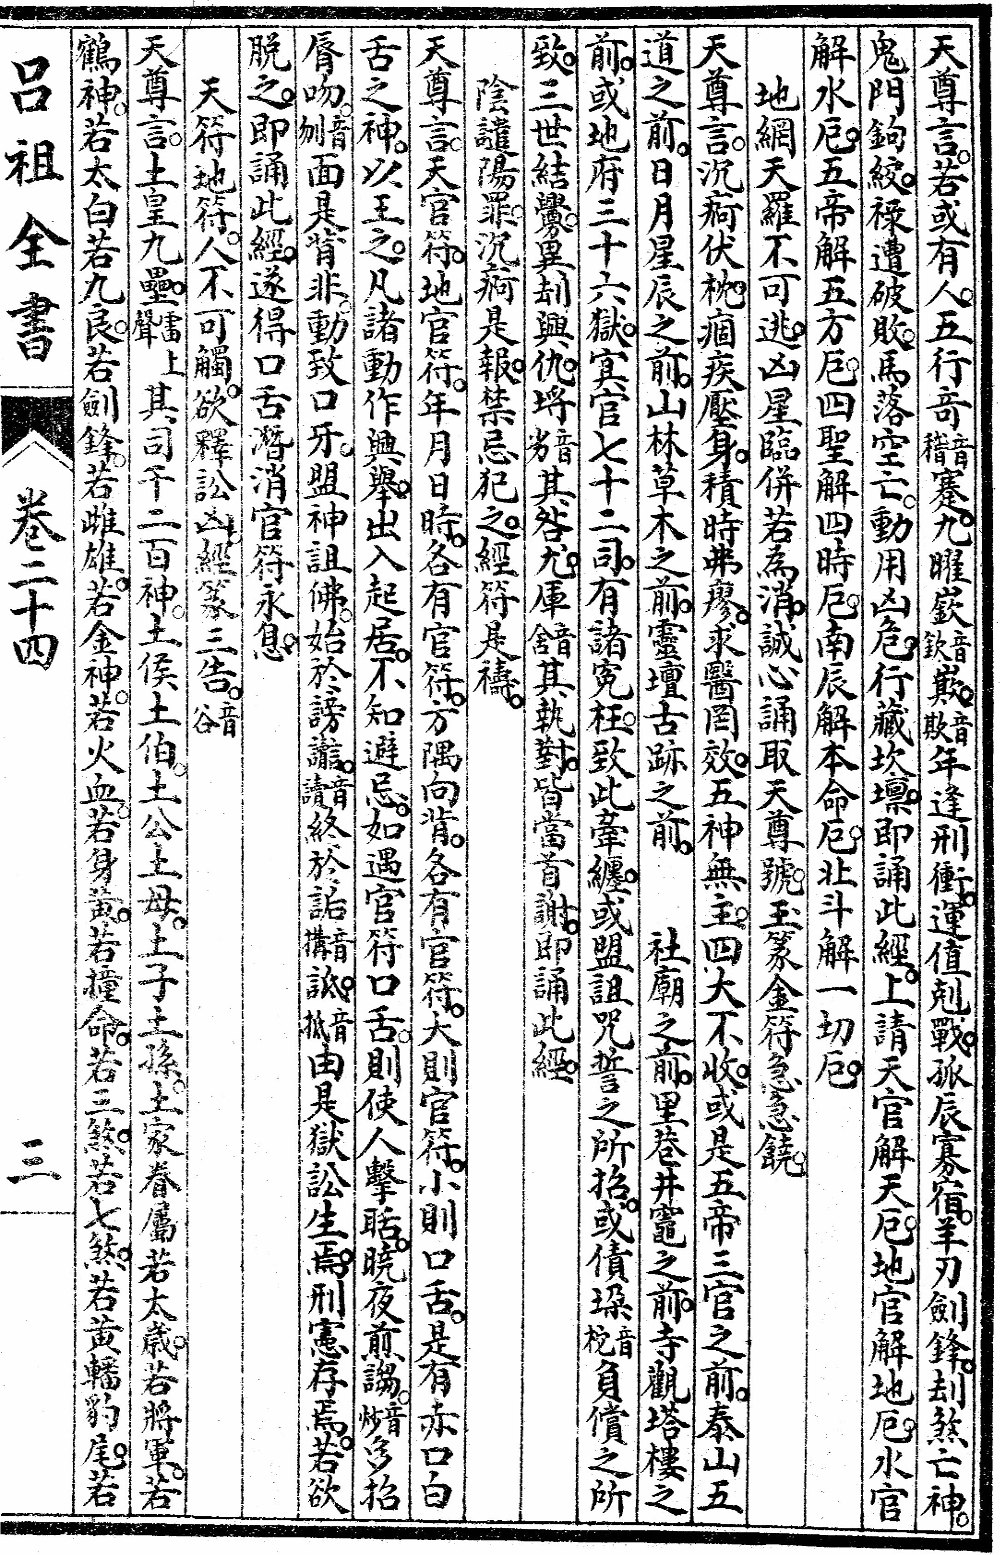 天尊言。若或有人。五行奇音稽蹇。九曜嶔音欽欺。音欺年逢刑衝。運值剋戰。孤辰寡宿。羊刃劍鋒。刦煞亡神。
鬼門鉤絞。祿遭破敗。馬落空亡。動用凶危。行藏坎壈。即誦此經。上請天官解天厄。地官解地厄。水官
解水厄。五帝解五方厄。四聖解四時厄。南辰解本命厄。北斗解一切厄。
地網天羅不可逃。凶星臨併若為消。誠心誦取天尊號。玉篆金符急急饒。
天尊言。沉疴伏枕。痼疾壓身。積時弗瘳。求醫罔效。五神無主。四大不收。或是五帝三官之前。泰山五
道之前。日月星辰之前。山林草木之前。靈壇古跡之前。社廟之前。里巷井竈之前。寺觀塔樓之
前。或地府三十六獄。冥官七十二司。有諸冤枉。致此牽纏。或盟詛咒誓之所招。或債垜音梲負償之所
致。三世結釁。異刦興仇。埒音劣其咎尤。厙音舍其執對。皆當首謝。即誦此經。
陰譴陽罪。沉痾是報。禁忌犯之。經符是禱。
天尊言。天官符。地官符。年月日時。各有官符。方隅向背。各有官符。大則官符。小則口舌。是有赤口白
舌之神。以王之。凡諸動作興舉。出入起居。不知避忌。如遇官符口舌。則使人擊聒。曉夜煎謅。音炒多招
脣吻。音刎面是背非。動致口牙。盟神詛佛。始於謗讟。音讀終於詬音搆詆。音抵由是獄訟生焉。刑憲存焉。若欲
脫之。即誦此經。遂得口舌潛消。官符永息。
天符地符。人不可觸。欲釋訟凶。經篆三告。音谷
天尊言。土皇九壘。壘上聲其司千二百神。土侯土伯。土公土母。土子土孫。土家眷屬。若太歲。若將軍。若
鶴神。若太白若九良。若劍鋒。若雌雄。若金神。若火血。若身黃。若撞命。若三煞。若七煞。若黃幡豹尾。若
呂祖全書
卷二十四
三